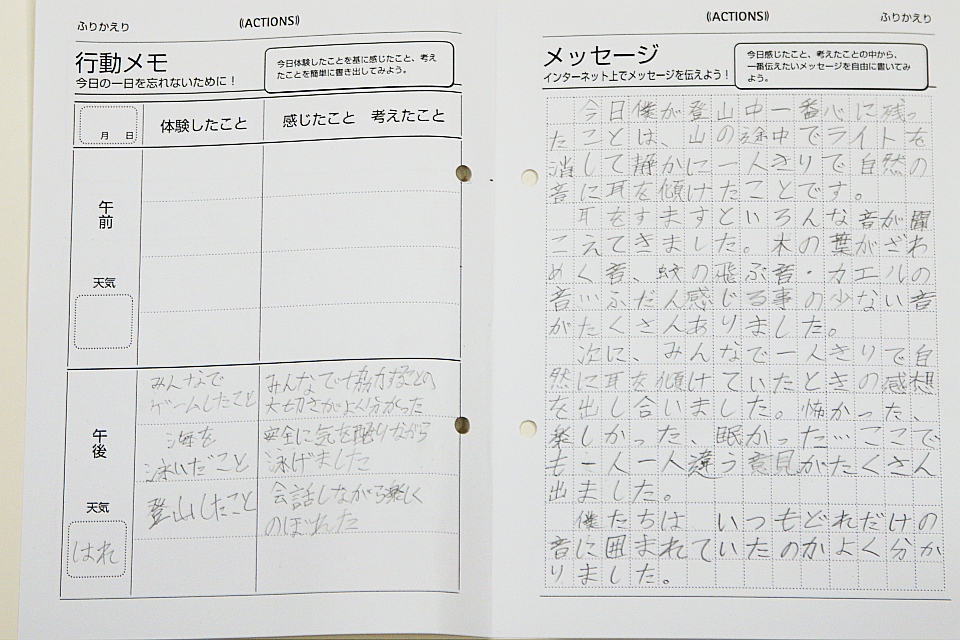 ふりかえり
((ACTIONS))
行動メモ
今日の一日を忘れないために！
今日体験したことを基に感じたこと、考え
たことを簡単に書き出してみよう。
月 日
体験したこと
感じたこと 考えたこと
午前
天気
午後
天気
はれ
みんなで
ゲームしたこと
みんなで協力することの
大切さがよく分かった
海を
泳いだこと
安全に気を配りながら
泳げました
登山したこと
会話しながら楽しく
のぼれた
((ACTIONS))
ふりかえり
メッセージ
インターネット上でメッセージを伝えよう！
今日感じたこと、考えたことの中から、
一番伝えたいメッセージを自由に書いてみ
よう。
今日僕が登山中一番心に残っ
たことは、山の途中でライトを
消して静かに一人きりで自然の
音に耳を傾けたことです。
耳をすますといろんな音が聞
こえてきました。木の葉がざわ
めく音、蚊の飛ぶ音・カエルの
音…ふだん感じる事の少ない音
がたくさんありました。
次に、みんなで一人きりで自
然に耳を傾けていたときの感想
を出し合いました。怖かった、
楽しかった、眠かった…ここで
も一人一人違う意見がたくさん
出ました。
僕たちは、いつもどれだけの
音に囲まれていたのかよく分か
りました。